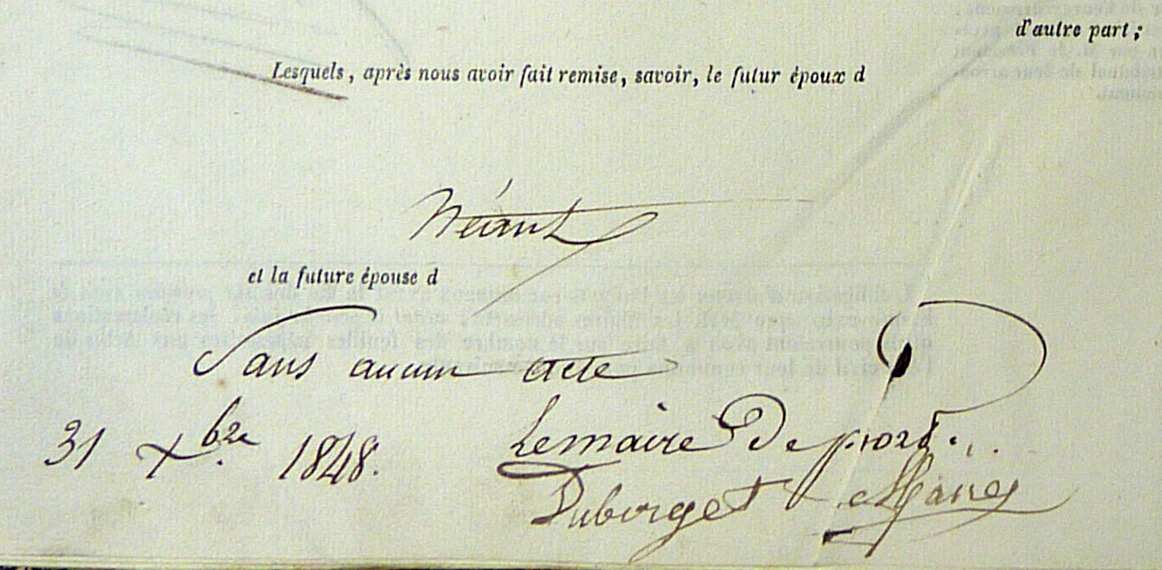 d'autre part ;
Lesquels, après nous avoir fait remise, savoir, le futur époux d
Néant
et la future épouse d
Sans aucun acte
31 Xbre 1848.
Lemaire De
Duborget Maire